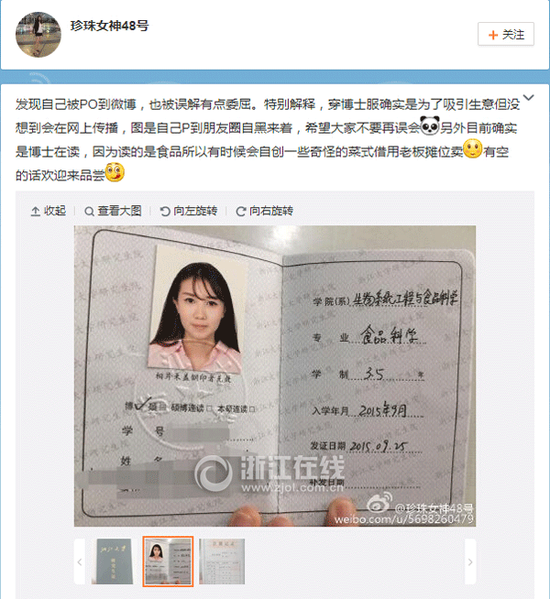 珍珠女神48号
+ 关注
发现自己被PO到微博，也被误解有点委屈。特别解释，穿博士服确实是为了吸引生意但没
想到会在网上传播，图是自己P到朋友圈自黑来着，希望大家不要再误会 另外目前确实
是博士在读，因为读的是食品所以有时候会自创一些奇怪的菜式借用老板摊位卖 有空
的话欢迎来品尝
收起 查看大图 向左旋转 向右旋转
相片未盖钢印者无效
硕博连读□ 本硕连读□
学 号
姓 名
学院(系) 生物系统工程与食品科学
专 业 食品科学
学 制 3.5 年
入学年月 2015年9月
发证日期 2015.09.25
补发日期
浙江在线
www.zjol.com.cn
@珍珠女神48号
weibo.com/u/5698260479